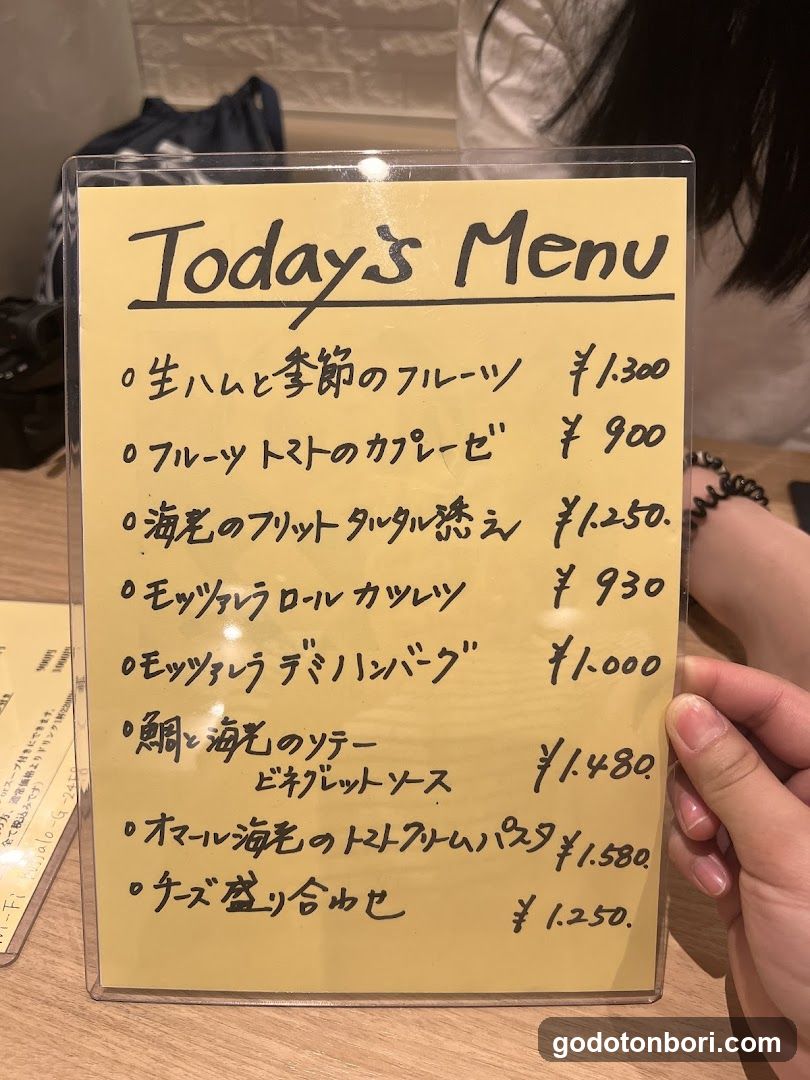 Today's Menu
○生ハムと季節のフルーツ ¥1.300
○フルーツトマトのカプレーゼ ¥900
○海老のフリットタルタル添え ¥1.250.
○モッツァレラロールカツレツ ¥930
○モッツァレラデミハンバーグ ¥1.000
○鯛と海老のソテー
ビネグレットソース ¥1.480.
○オマール海老のトマトクリームパスタ ¥1.580.
○チーズ盛り合わせ ¥1.250.
スープ付きにできます。
通常価格よりドリンク1杯
全て税込みです)
godotonbori.com